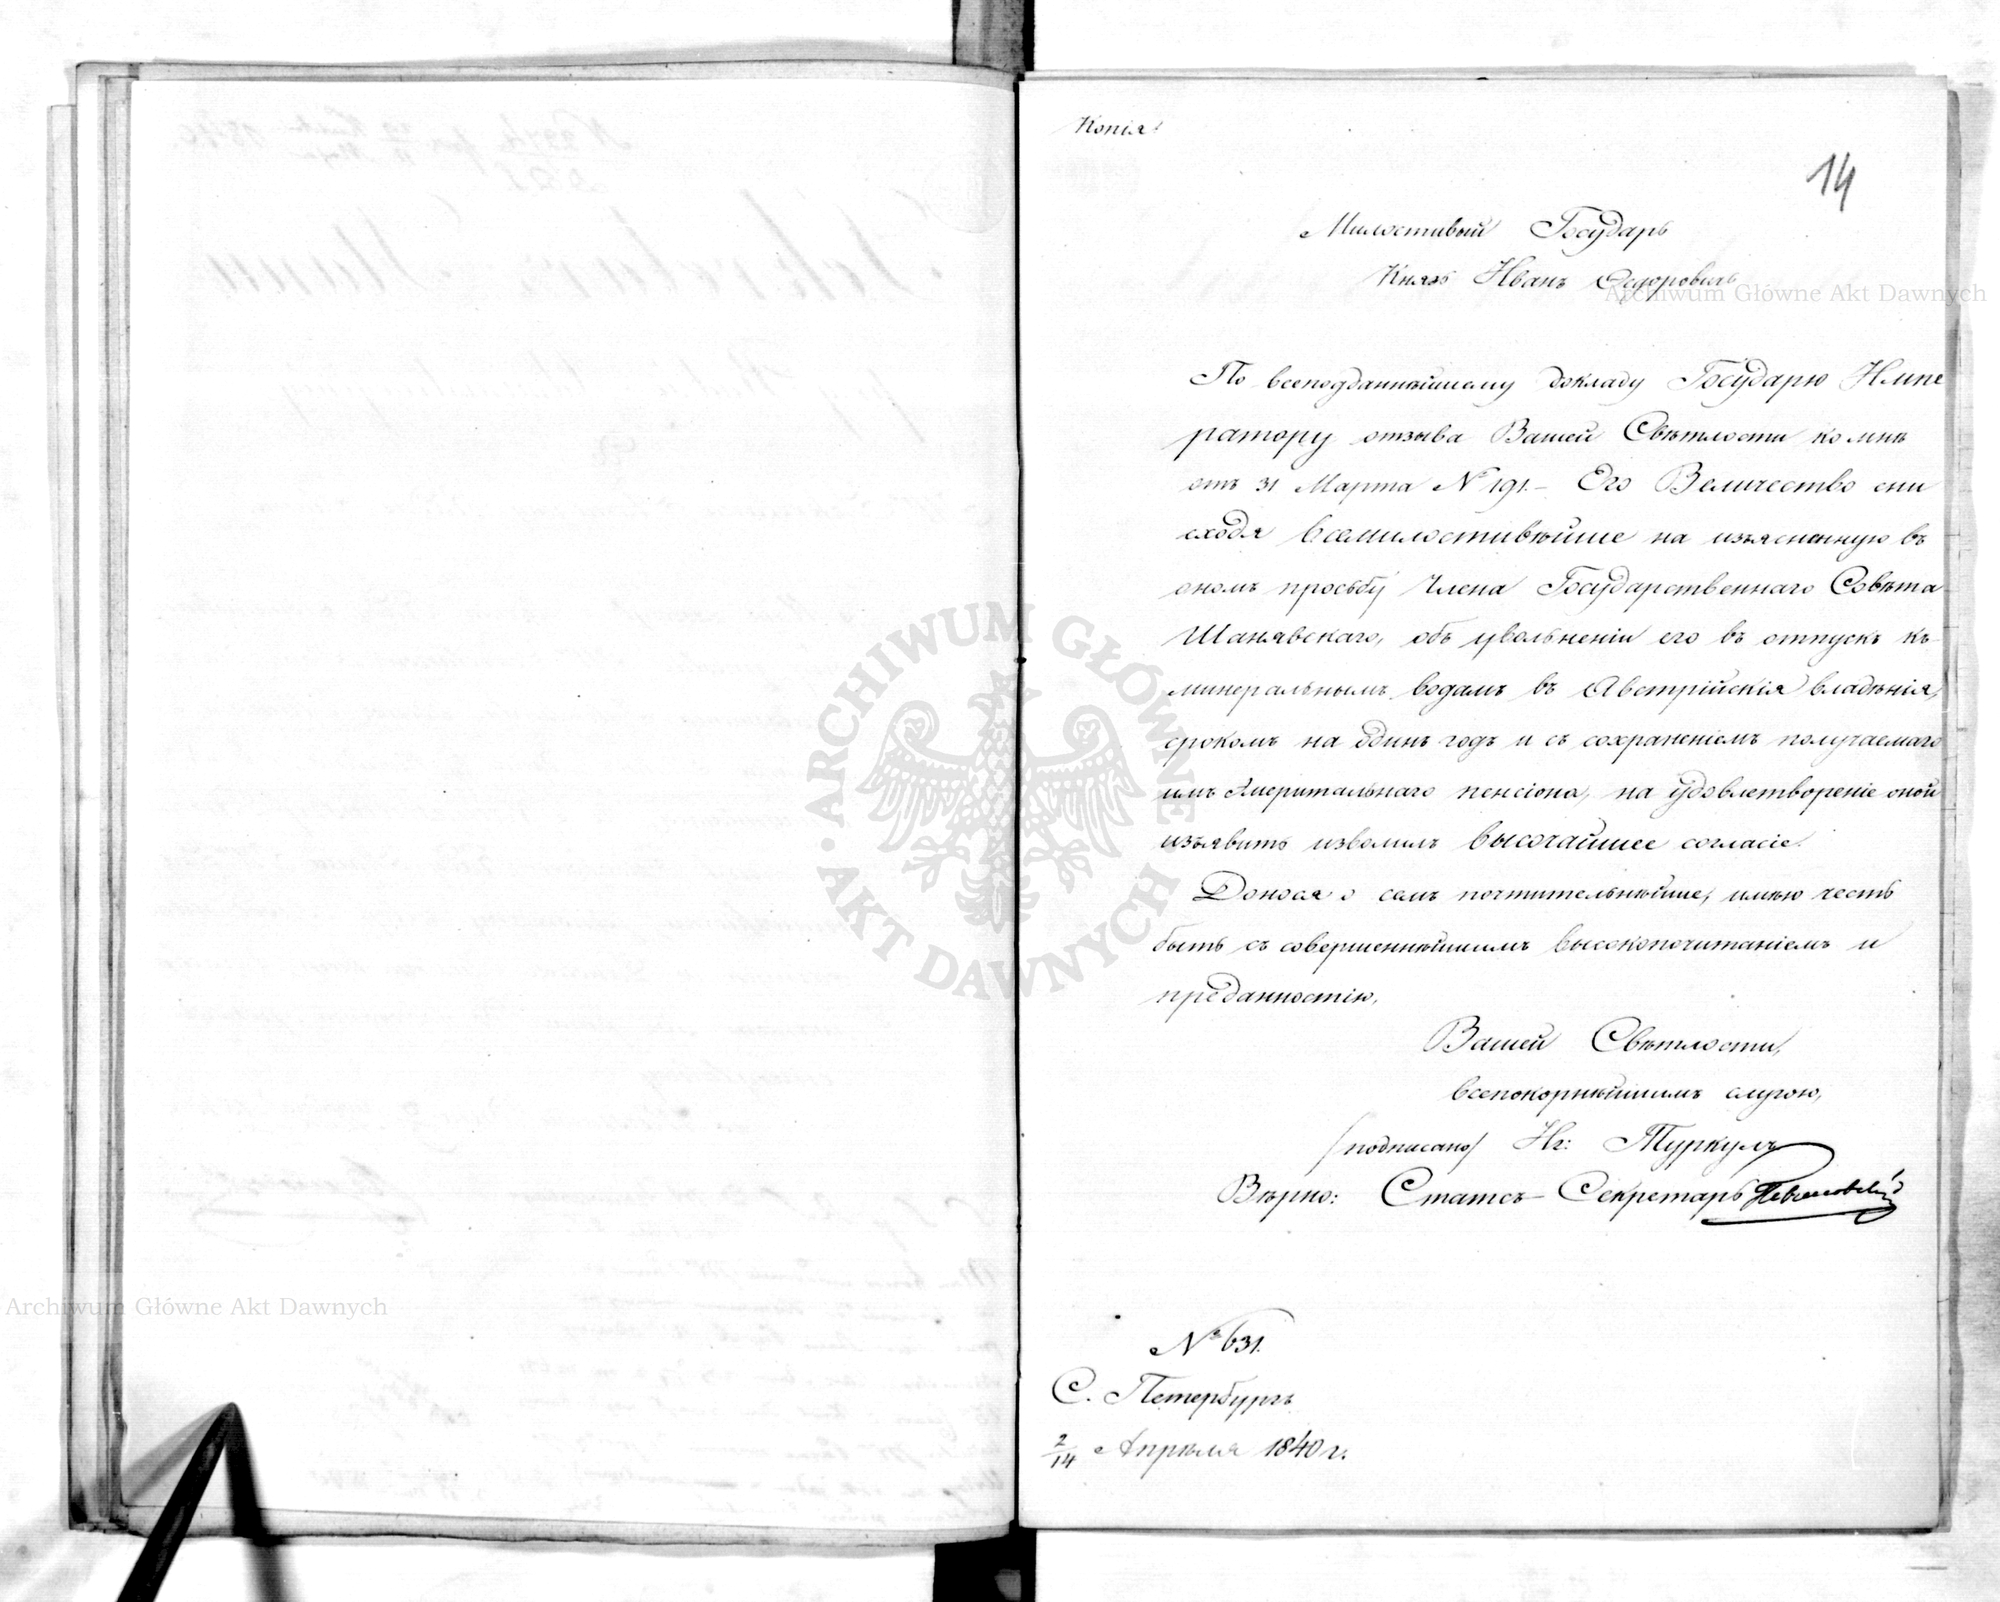 Копія.
14
Милостивый Государь
Князь Иванъ Ѳедоровичь
По всеподданнѣйшему докладу Государю Импе
ратору отзыва Вашей Свѣтлости ко мнѣ
отъ 31 Марта № 191.– Его Величество сни
сходя всемилостивѣйше на изъясненную въ
ономъ просьбу Члена Государственнаго Совѣта
Шанявскаго, объ увольненіи его въ отпускъ къ
минеральнымъ водамъ въ Австрійскія владѣнія,
срокомъ на одинъ годъ и съ сохраненіемъ получаемаго
имъ Эмеритальнаго пенсіона, на удовлетвореніе оной
изъявить изволилъ высочайшее согласіе.
Донося о семъ почтительнѣйше, имѣю честь
быть съ совершеннѣйшимъ высокопочитаніемъ и
преданностію,
Вашей Свѣтлости,
всепокорнѣйшимъ слугою,
/подписано/ Иг: Туркулъ
Вѣрно: Статсъ-Секретарь
№ 631.
С. Петербургъ
2/14 Апрѣля 1840 г.
Archiwum Główne Akt Dawnych
Archiwum Główne Akt Dawnych
ARCHIWUM GŁÓWNE
AKT DAWNYCH